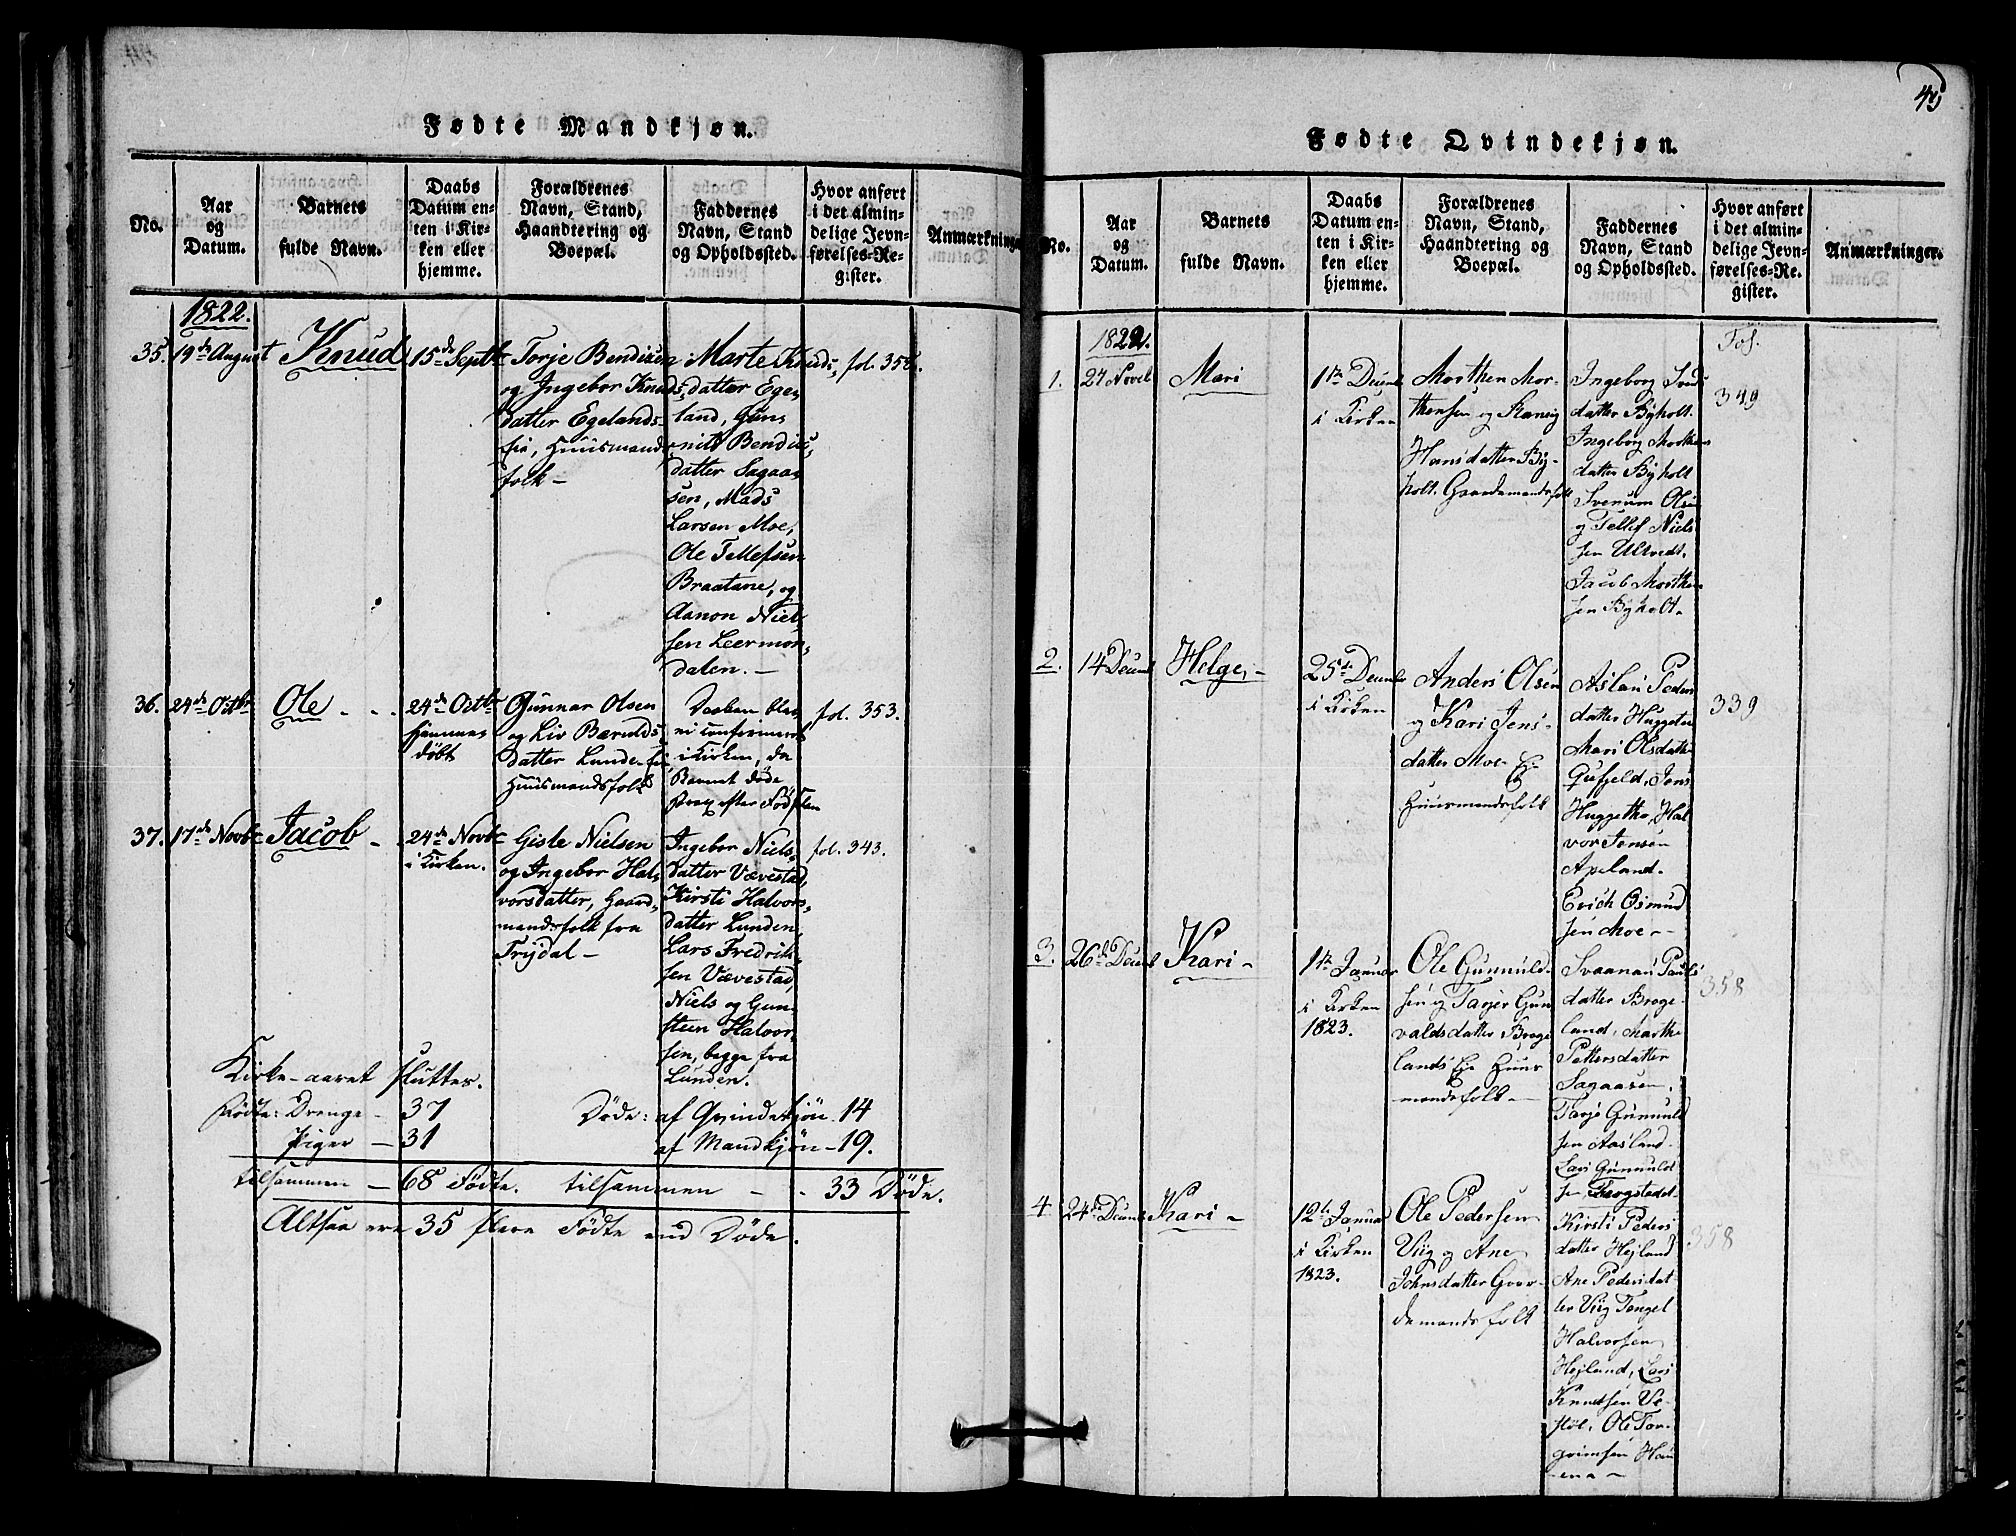 Fødte Mandkjøn.
No.
Aar
og
Datum.
Barnets
fulde Navn.
Daabs
Datum en-
ten i Kir-
ken eller
hjemme.
Forældrenes
Navn, Stand,
Haandtering og
Boepæl.
Faddernes
Navn, Stand
og Opholdssted.
Hvor anført
i det almin-
delige Jevn-
førelses-Re-
gister.
Anmærkninge
1822.
35. 19de August
Knud
15de Septbr
Torje Bendixen
og Ingebor Knuds-
datter Egelands-
eie, Huusmand-
folk -
Marte Knuds-
datter Ege-
land, Gun-
nild Bendix-
datter Sagaa-
sen, Mads
Larsen Moe,
Ole Tellefsen
Braatane, og
Aanon Niel-
sen Leermon-
dalen. -
fol. 358.
36. 24de Octbr
Ole - -
24de Octbr
hjemme-
døbt
Gunnar Olsen
og Liv Bærulds-
datter Lunde-eie,
Huusmandsfolk
Daaben blev
ei confirmeret
i Kirken, da
Barnet døde
strax efter Fødselen
fol. 353.
37. 17de Novbr
Jacob -
24de Novbr
i Kirken.
Gisle Nielsen
og Ingebor Hal-
vorsdatter, Gaard-
mandsfolk fra
Trydal -
Ingebor Niels-
datter Vævestad,
Kirsti Halvors-
datter Lunden,
Lars Fredrik-
sen Vævestad,
Niels og Gun-
steen Halvor-
sen, begge fra
Lunden.
fol. 343.
Kirke-aaret slutter.
Fødte: Drenge - 37
Piger - 31
tilsammen - 68 Fødte.
Døde: af Qvindekjøn - 14
af Mandkjøn - 19.
tilsammen - - 33 Døde.
Altsaa ere 35 flere Fødte end Døde.
49
Fødte Qvindekjøn.
No.
Aar
og
Datum.
Barnets
fulde Navn.
Daabs
Datum en-
ten i Kir-
ken eller
hjemme.
Forældrenes
Navn, Stand,
Haandtering og
Boepæl.
Faddernes
Navn, Stand
og Opholdssted.
Hvor anført
i det almin-
delige Jevn-
førelses-Re-
gister.
Anmærkninger.
1822.
1.
24 Novb
Mari
1te Decmb
i Kirken
Morthen Mor-
thensen og
Hansdatter By-
holt. Gaardemandsfolk
Ingeborg Svends
datter Byholt.
Ingeborg Morthens
datter Byholt
Olsen
og Tellef Niels
sen Ulveds.
Jacob Morthen
sen Byholt -
Fol.
349
2.
14 Decmb
Helge, -
25de Decmb
i Kirken
Anders Olsen
og Kari Jens-
datter Moe Eie
Huusmandsfolk
Aslau Peders
datter Huggeto
Mari Olsdatter
Gufjeld, Jens
Huggetho, Hal
vor Jensen
Apeland.
Erich Osmund
sen Moe -
339
3.
26de Decmb
Kari -
1te Januar
i Kirken
1823.
Ole Gunnuld-
sen og Tarjer Gun
valdsdatter Broge
lands Eie Huus
mandsfolk -
Svaanau Pauls
datter Broge-
land, Marthe
Pettersdatter
Sagaasen,
Tarje Gunuld
sen Aasland.
Lars Gunuld
sen Brogstedet.
358
4
24de Decmb
Kari -
12te Januar
i Kirken
1823.
Ole Pedersen
Viig og Ane
Johnsdatter Gaar-
demandsfolk
Kirsti Peders
datter Hejland
Ane Pedersdat
ter Viig Tengel
Halvorsen
Hejland, Lars
Knudsen Ve-
støl, Ole Tor-
grimsen Hau
ena -
358